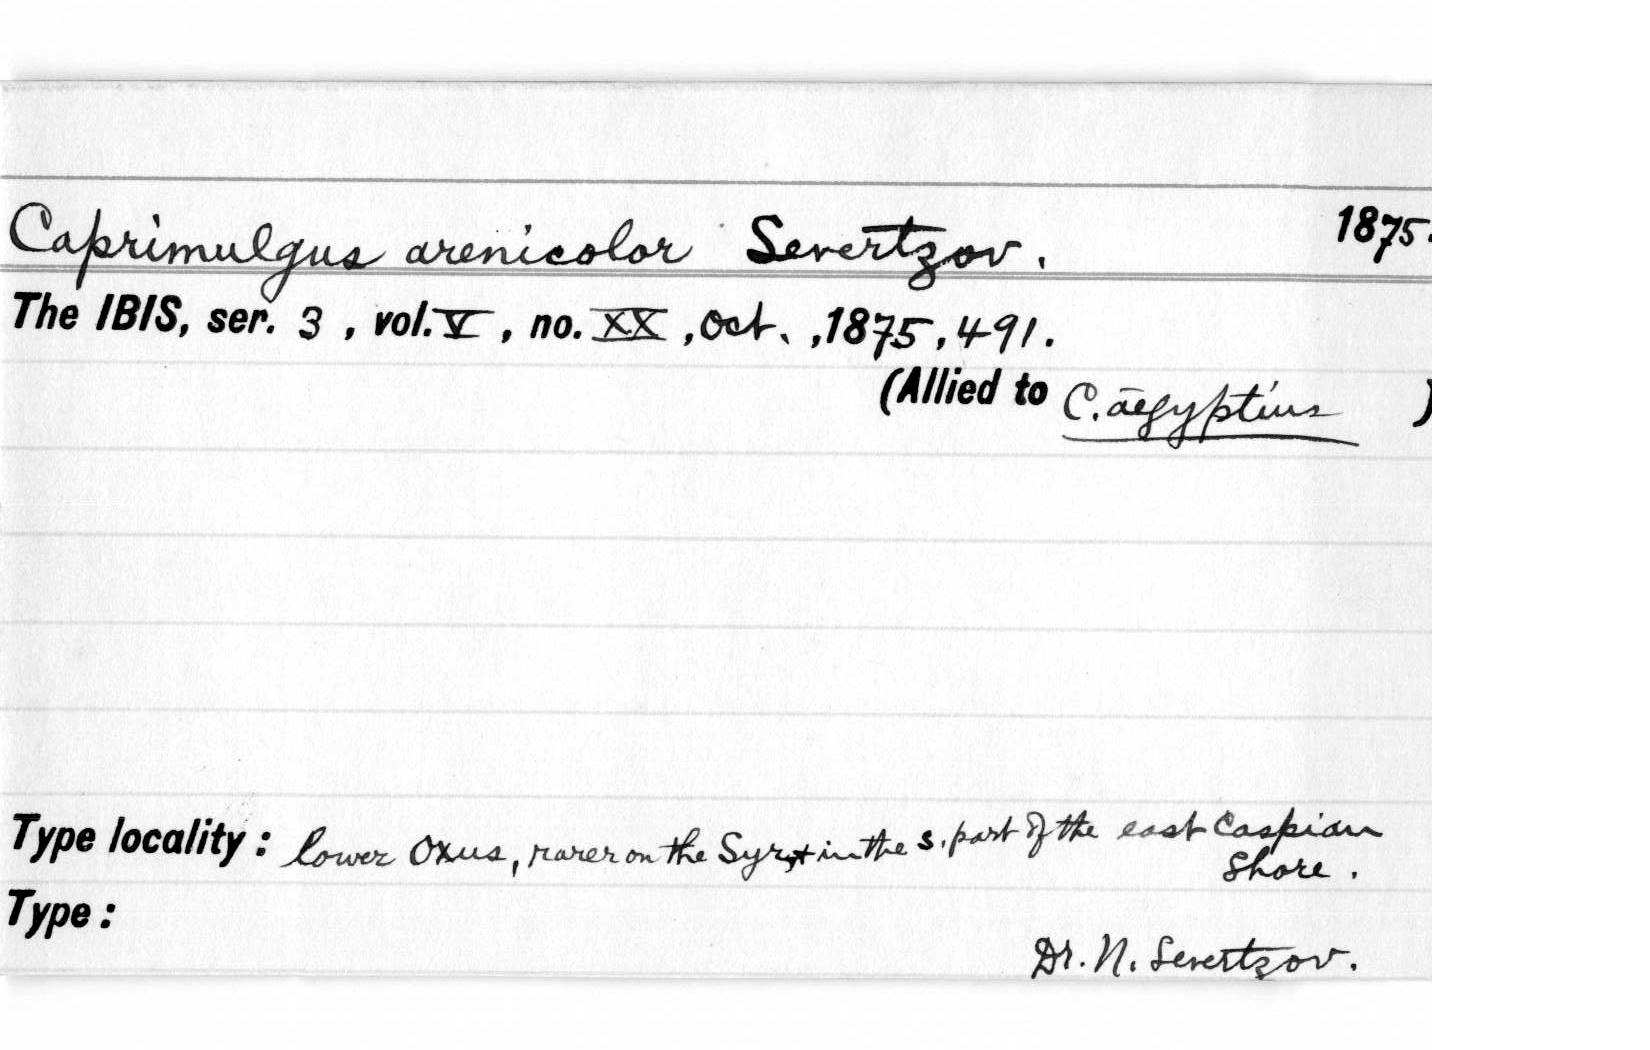 Caprimulgus arenicolor Severtzov. 1875.
The IBIS, ser. 3, vol. V, no. XX, Oct., 1875, 491.
(Allied to C. aegyptius )
Type locality: lower Oxus, rarer on the Syr, + in the s. part of the east Caspian
Shore.
Type:
Dr. N. Severtzov.